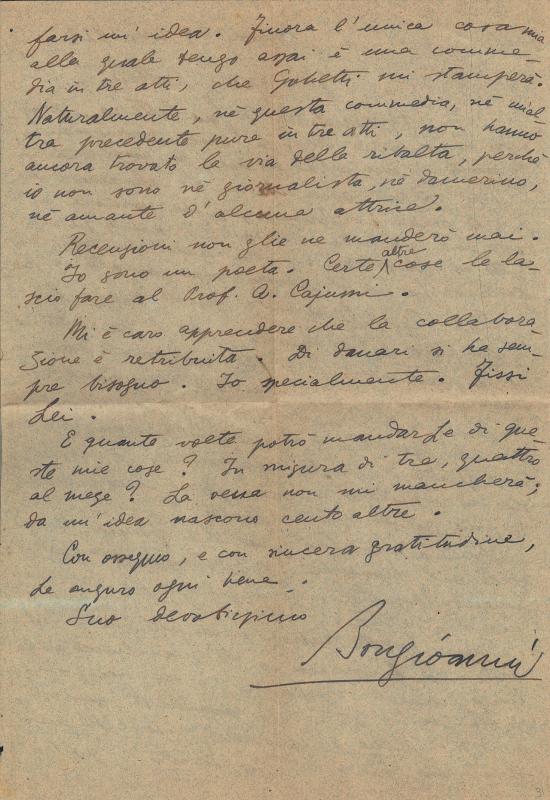 farsi un'idea. Finora l'unica cosa mia
alla quale tengo assai è una comme-
dia in tre atti, che Gobetti mi stamperà.
Naturalmente, nè questa commedia, nè un'al-
tra precedente pure in tre atti, non hanno
ancora trovato la via della ribalta, perché
io non sono nè giornalista, nè damerino,
nè amante d'alcuna attrice.
Recensioni non glie ne manderò mai.
Io sono un poeta. Certe altre cose le la-
scio fare al Prof. A. Cajumi.
Mi è caro apprendere che la collabora-
zione è retribuita. Di danari si ha sem-
pre bisogno. Io specialmente. Fissi
Lei.
E quante volte potrò mandarLe di que-
ste mie cose? In misura di tre, quattro
al mese? La vena non mi mancherà;
da un'idea nascono cento altre.
Con ossequio, e con sincera gratitudine,
Le auguro ogni bene.
Suo devotissimo
Bongioanni
3